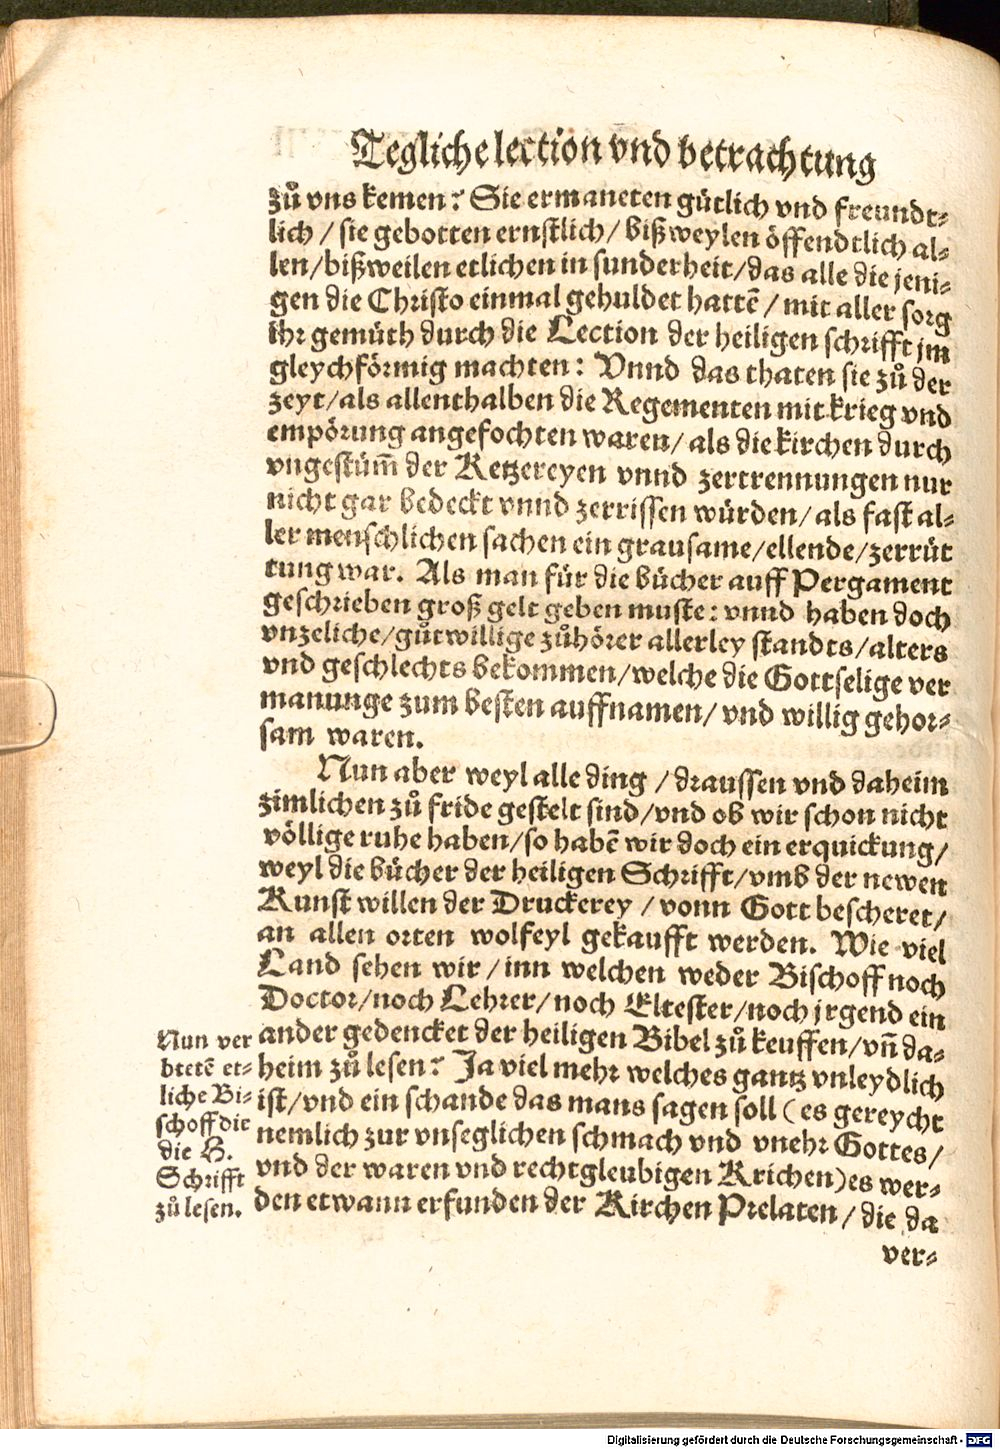 Tegliche lection vnd betrachtung
zů vns kemen? Sie ermaneten gütlich vnd freundt⸗
lich / sie gebotten ernstlich / bißweylen öffendtlich al⸗
len / bißweilen etlichen in sunderheit / das alle die jeni⸗
gen die Christo einmal gehuldet hattē / mit aller sorg
ihr gemüth durch die Lection der heiligen schrifft jm
gleychförmig machten: Vnnd das thaten sie zů der
zeyt / als allenthalben die Regementen mit krieg vnd
empörung angefochten waren / als die kirchen durch
vngestüm̃ der Ketzereyen vnnd zertrennungen nur
nicht gar bedeckt vnnd zerrissen würden / als fast al⸗
ler menschlichen sachen ein grausame / ellende / zerrüt
tung war. Als man für die bücher auff Pergament
geschrieben groß gelt geben muste: vnnd haben doch
vnzeliche / gůtwillige zůhörer allerley standts / alters
vnd geschlechts bekommen / welche die Gottselige ver
manunge zum besten auffnamen / vnd willig gehor⸗
sam waren.
Nun aber weyl alle ding / draussen vnd daheim
zimlichen zů fride gestelt sind / vnd ob wir schon nicht
völlige ruhe haben / so habē wir doch ein erquickung /
weyl die bücher der heiligen Schrifft / vmb der newen
Kunst willen der Druckerey / vonn Gott bescheret /
an allen orten wolfeyl gekaufft werden. Wie viel
Land sehen wir / inn welchen weder Bischoff noch
Doctor / noch Lehrer / noch Eltester / noch jrgend ein
ander gedencket der heiligen Bibel zů keuffen / vñ da⸗
heim zů lesen? Ja viel mehr welches gantz vnleydlich
ist / vnd ein schande das mans sagen soll (es gereycht
nemlich zur vnseglichen schmach vnd vnehr Gottes /
vnd der waren vnd rechtgleubigen Krichen) es wer⸗
den etwann erfunden der Kirchen Prelaten / die da
ver⸗
Nun ver
btetē et⸗
liche Bi⸗
schoff die
die H.
Schrifft
zů lesen.
Digitalisierung gefördert durch die Deutsche Forschungsgemeinschaft - DFG